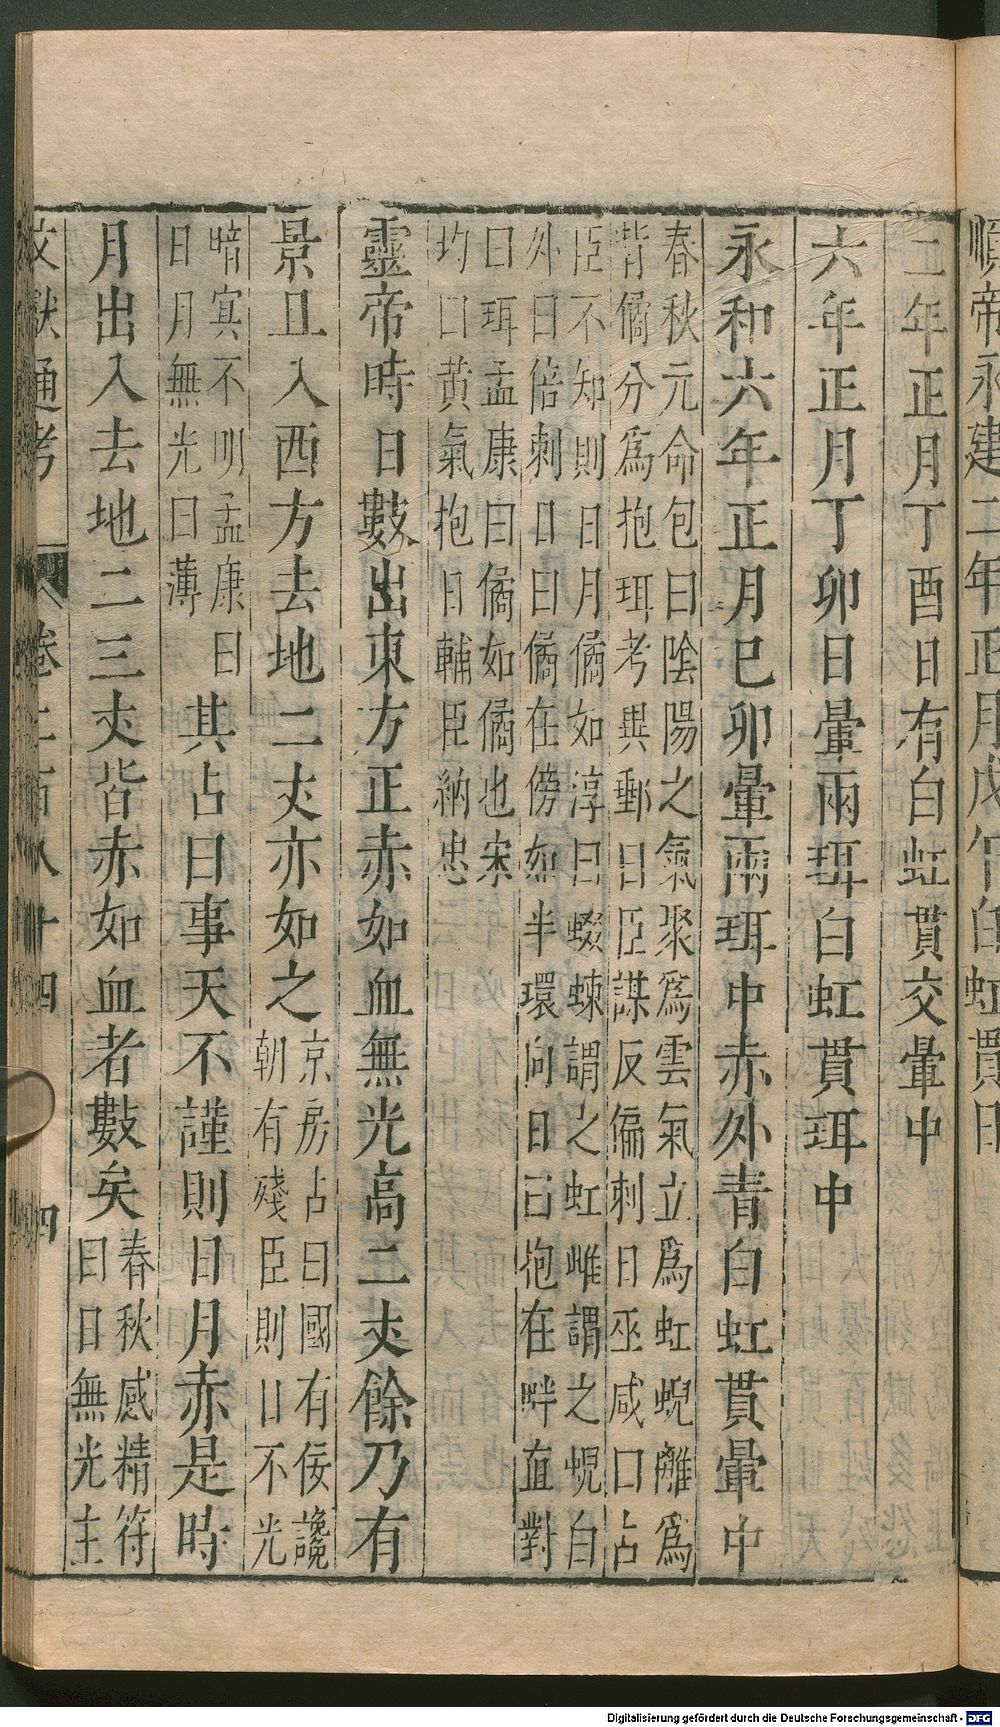 順帝永建二年正月戊午白虹貫日
二年正月丁酉日有白虹貫交暈中
六年正月丁卯日暈兩珥白虹貫珥中
永和六年正月巳卯暈兩珥中赤外青白虹貫暈中
春秋元命包曰陰陽之氣聚爲雲氣立爲虹蜺離爲
背僪分爲抱珥考異郵曰臣謀反偏刺日巫咸曰占
臣不知則日月僪如淳曰蝃蝀謂之虹雌謂之蜺白
外曰倍刺日曰僪在傍如半環向日曰抱在畔直對
曰珥孟康曰僪如僪也宋
均曰黄氣抱日輔臣納忠
靈帝時日數出東方正赤如血無光高二丈餘乃有
景且入西方去地二丈亦如之
京房占曰國有佞讒
朝有殘臣則日不光
暗冥不明孟康曰
日月無光曰薄
其占曰事天不謹則日月赤是時
月出入去地二三丈皆赤如血者數矣
春秋感精符
曰日無光主
文獻通考
卷二百八十四
四
Digitalisierung gefördert durch die Deutsche Forschungsgemeinschaft - DFG